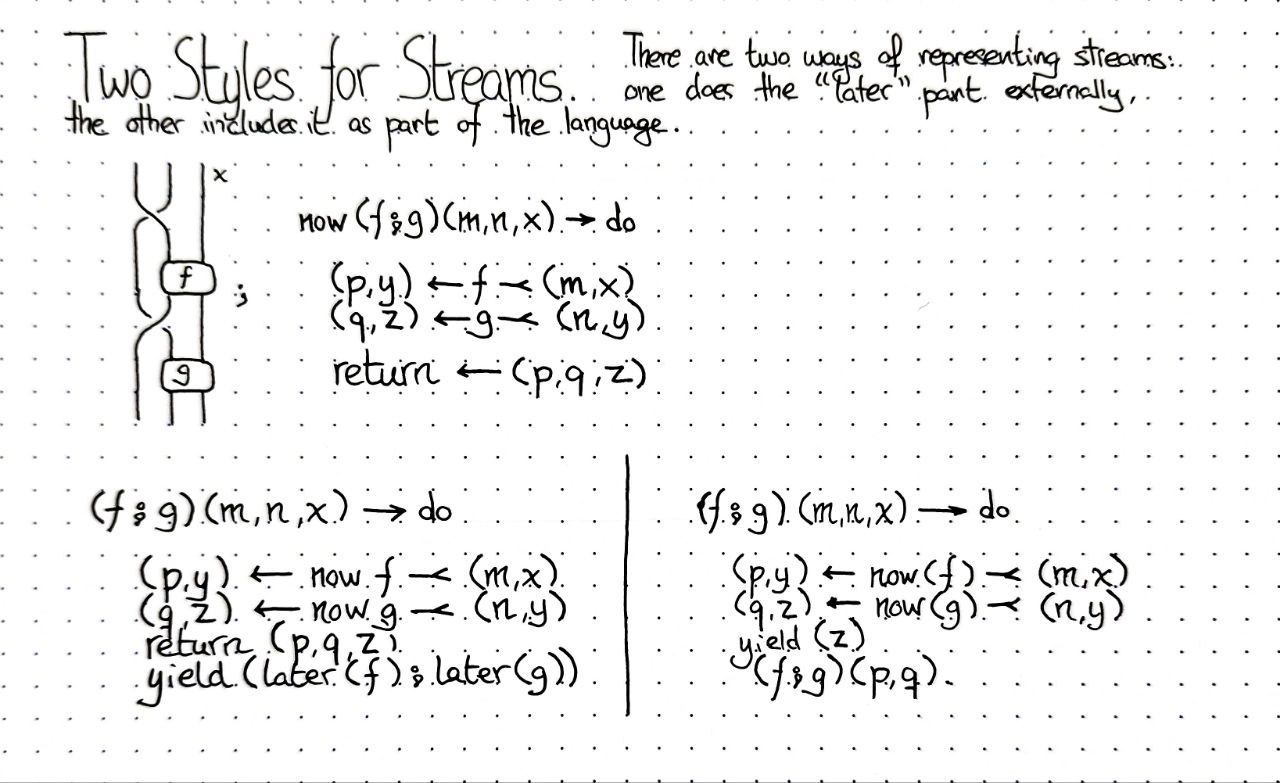 Two Styles for Streams. There are two ways of representing streams:
one does the "later" part externally,
the other includes it as part of the language.
x
now (f⨾g)(m,n,x) → do
f
(p,y) ← f ⤙ (m,x)
;
(q,z) ← g ⤙ (n,y)
g
return ← (p,q,z)
(f⨾g)(m,n,x) → do
(p,y) ← now f ⤙ (m,x)
(q,z) ← now g ⤙ (n,y)
return (p,q,z)
yield (later (f) ⨾ later (g))
(f⨾g)(m,n,x) → do
(p,y) ← now(f) ⤙ (m,x)
(q,z) ← now(g) ⤙ (n,y)
yield (z)
(f⨾g)(p,q).